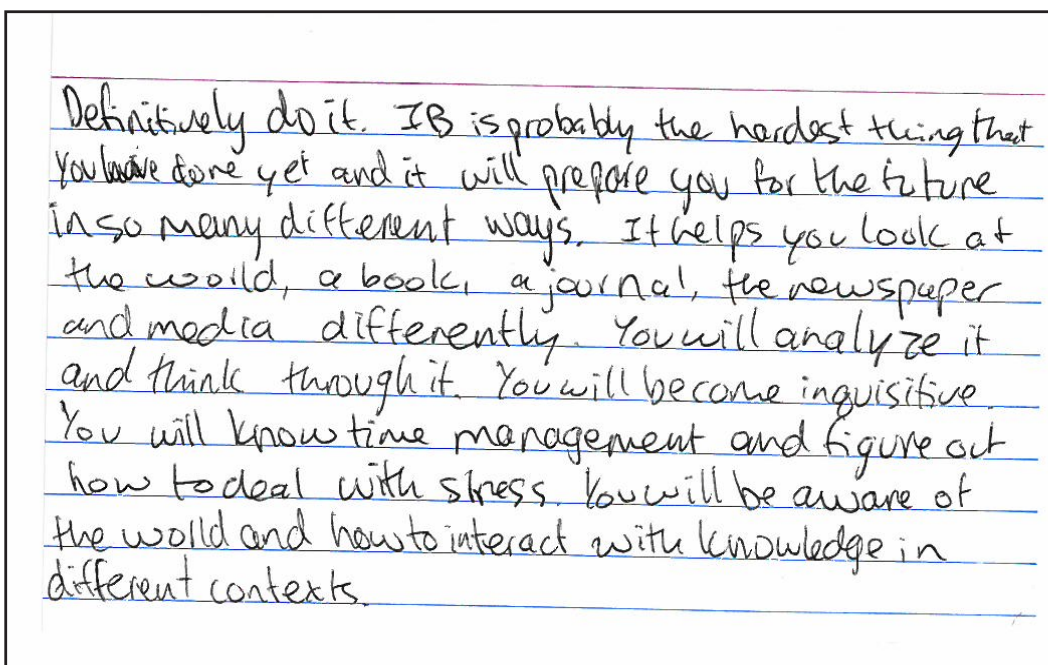 Definitively do it. IB is probably the hardest thing that
you have done yet and it will prepare you for the future
in so many different ways. It helps you look at
the world, a book, a journal, the newspaper
and media differently. You will analyze it
and think through it. You will become inquisitive.
You will know time management and figure out
how to deal with stress. You will be aware of
the world and how to interact with knowledge in
different contexts.